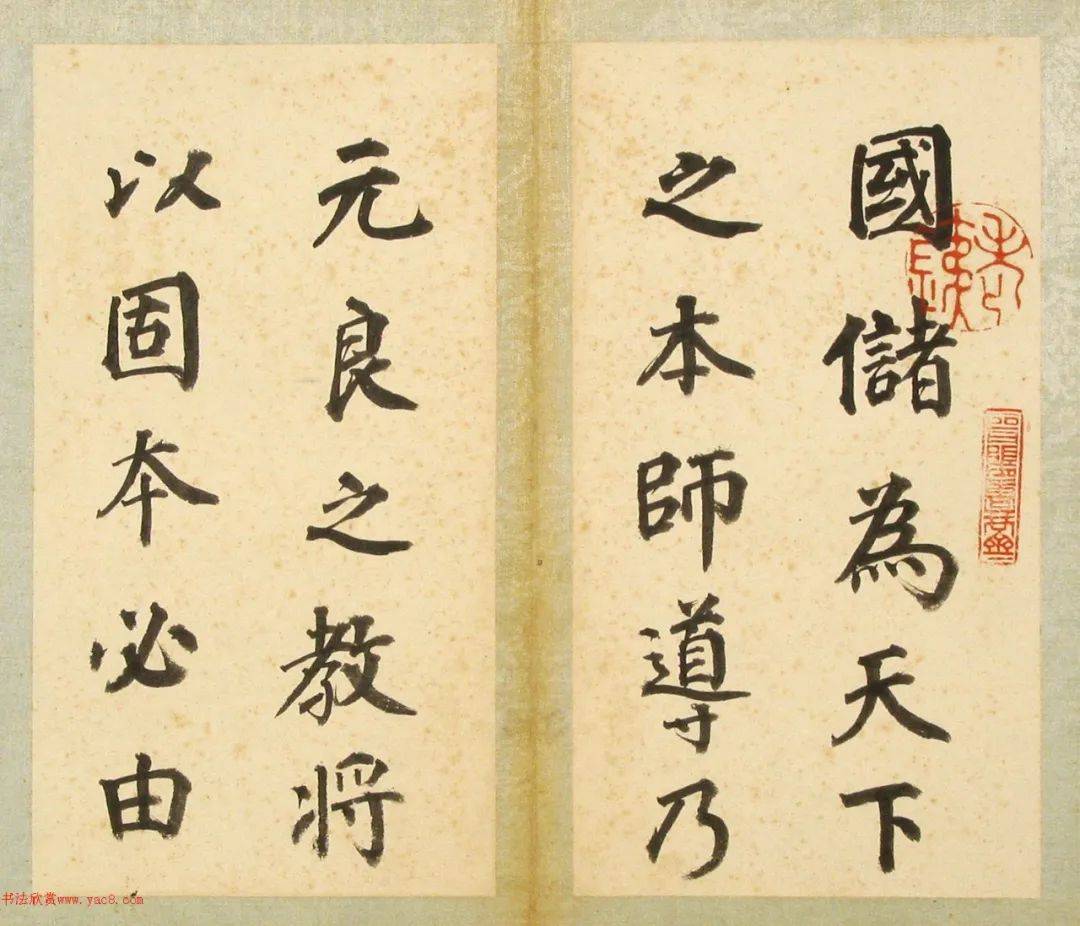 國儲為天下
之本師導乃
元良之教將
以固本必由
书法欣赏www.yac8.com